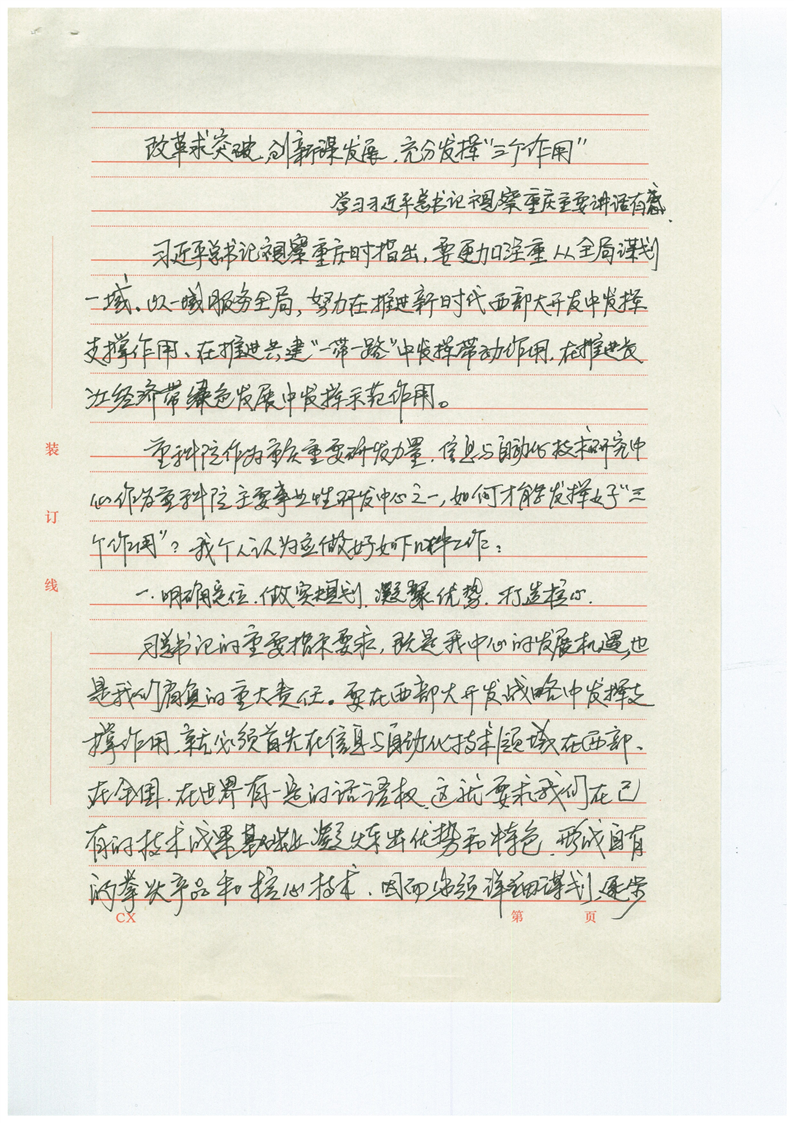 改革求突破，创新谋发展，充分发挥“三个作用”
学习习近平总书记视察重庆重要讲话有感
习近平总书记视察重庆时指出，要更加注重从全局谋划
一域、以一域服务全局，努力在推进新时代西部大开发中发挥
支撑作用、在推进共建“一带一路”中发挥带动作用、在推进长
江经济带绿色发展中发挥示范作用。
重科院作为重庆重要研发力量，信息与自动化技术研究中
心作为重科院主要事业性研发中心之一，如何才能发挥好“三
个作用”？我个人认为应做好如下几种工作：
一.明确定位，做实规划，凝聚优势，打造核心.
习总书记的重要指示要求，既是我中心的发展机遇，也
是我们肩负的重大责任。要在西部大开发战略中发挥支
撑作用，就必须首先在信息与自动化技术领域在西部、
在全国、在世界有一定的话语权，这就要求我们在已
有的技术成果基础上凝炼出优势和特色，形成自有
的拳头产品和核心技术，因而必须详细谋划，逐步
装
订
线
CX
第 页